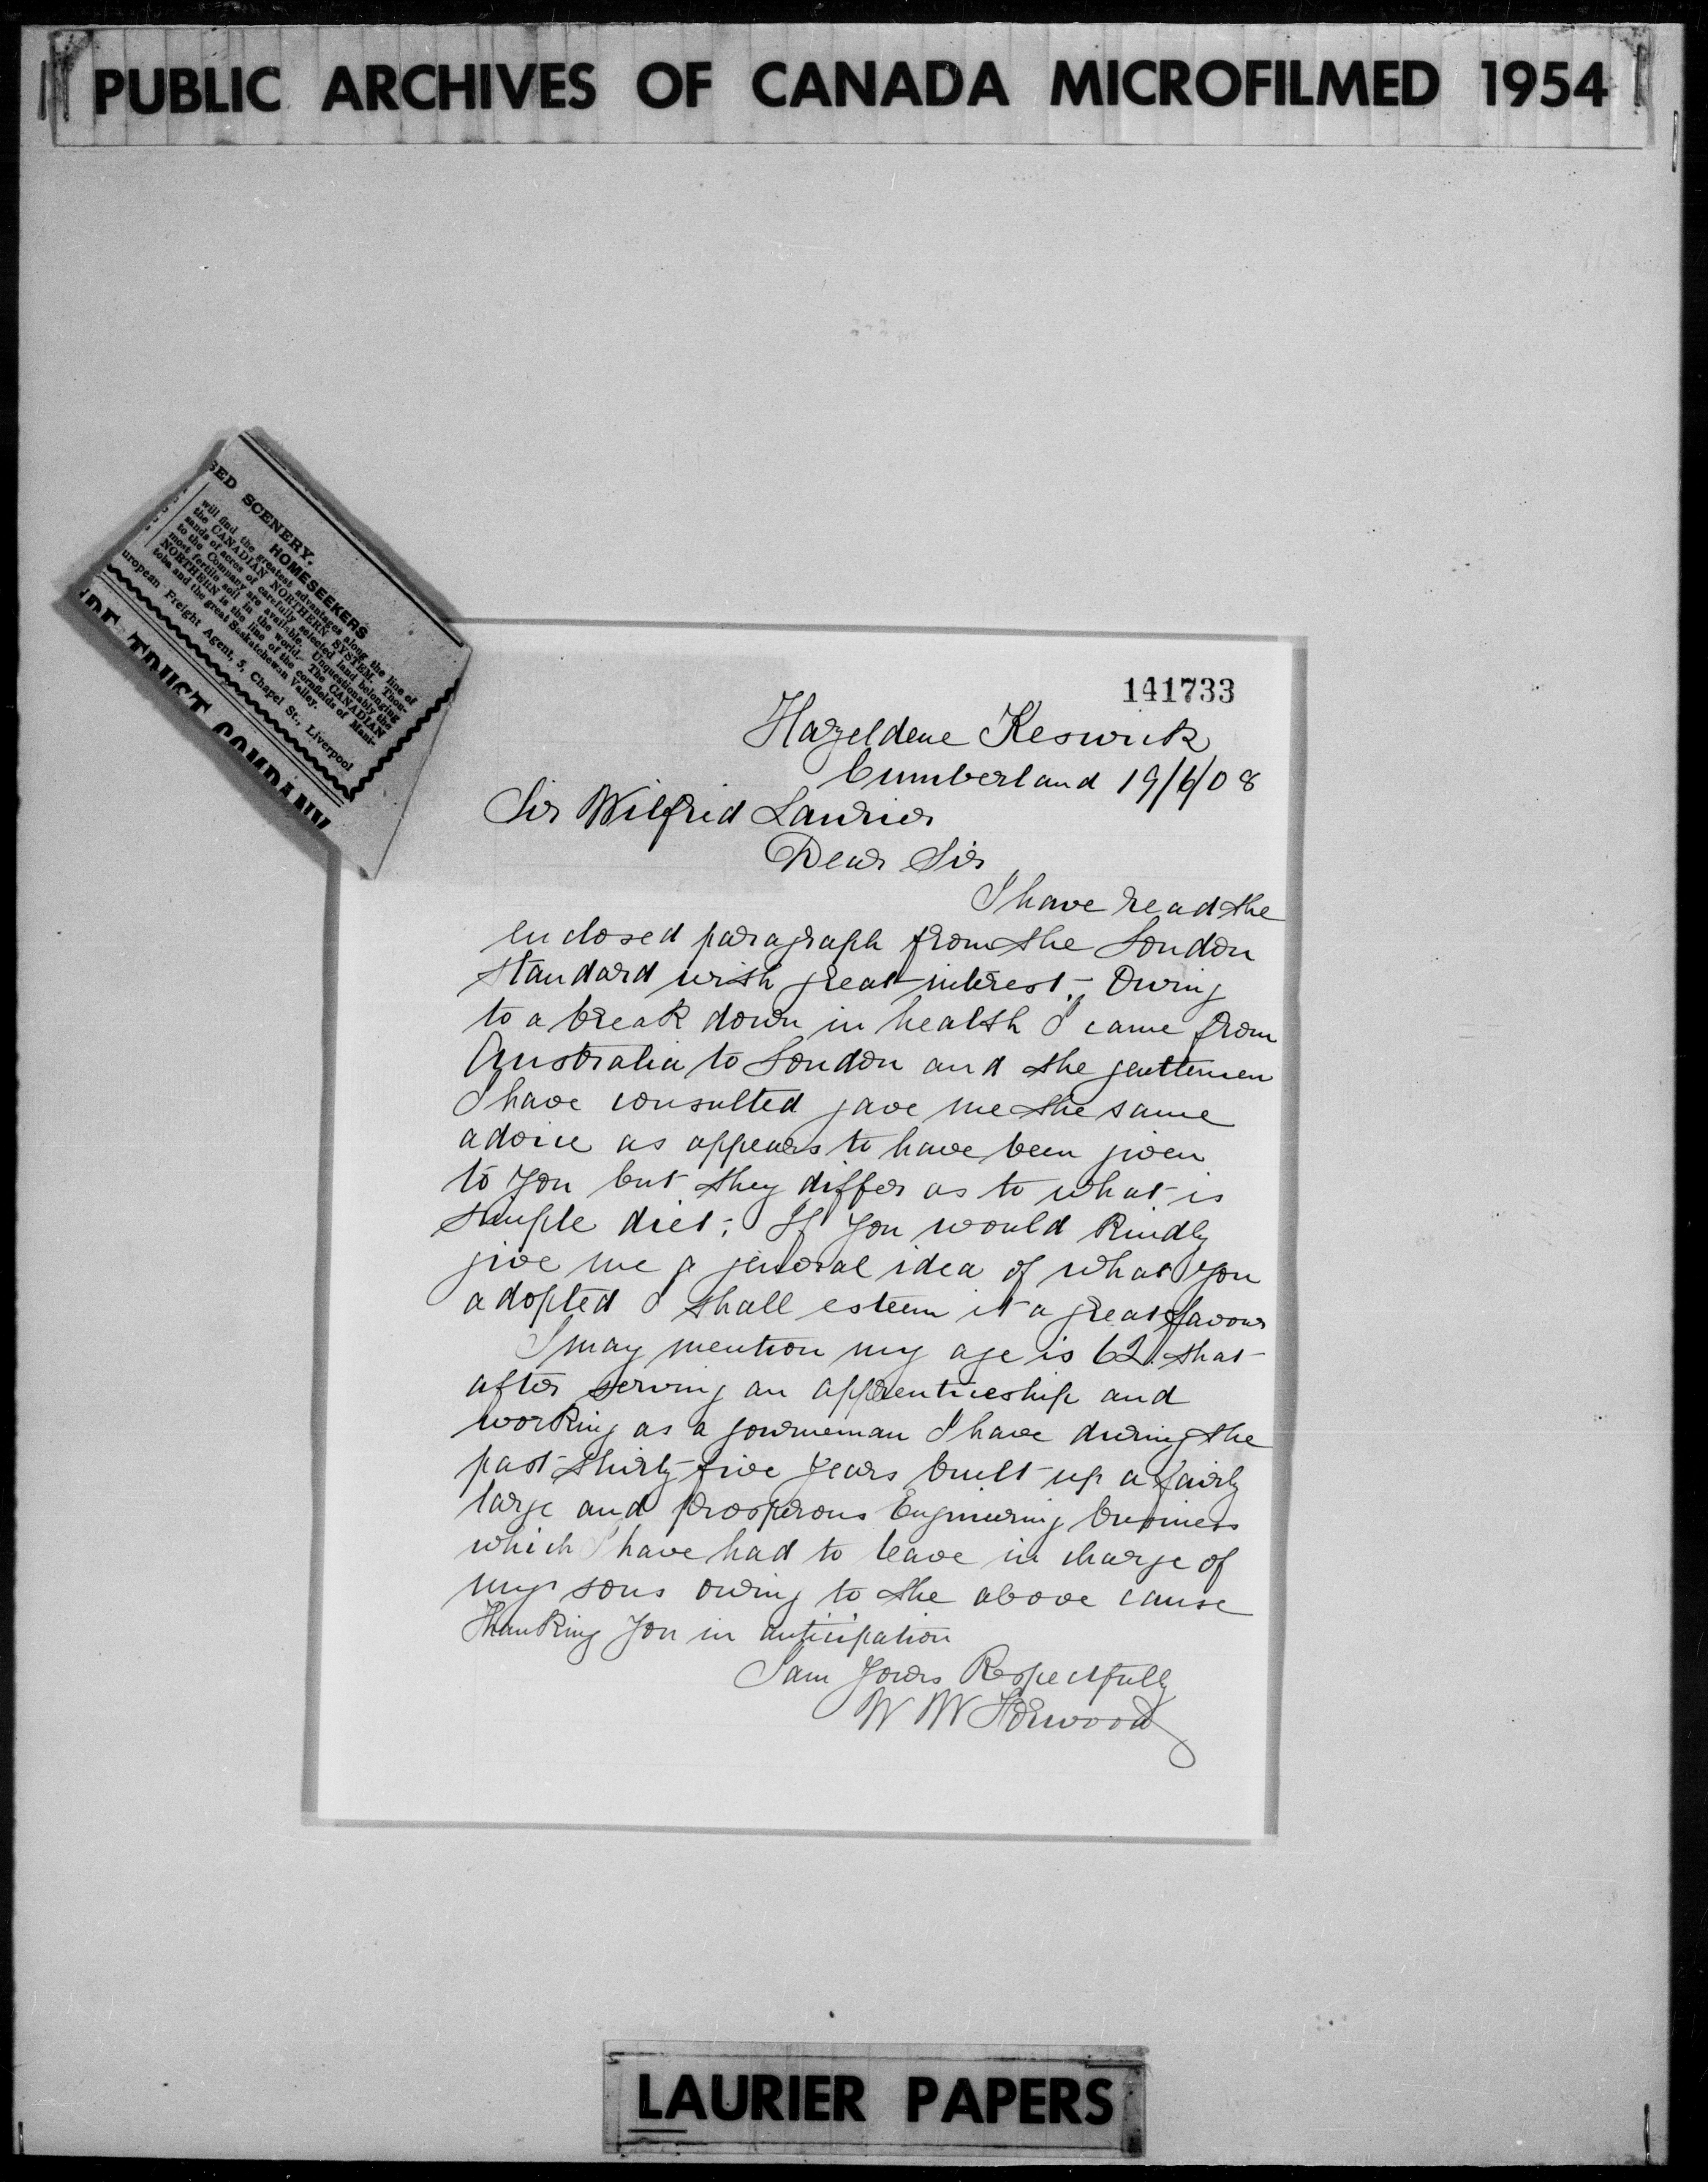 PUBLIC ARCHIVES OF CANADA MICROFILMED 1954
SED SCENERY.
HOMESEEKERS
will find the greatest advantages along the line of
the CANADIAN NORTHERN SYSTEM. Thou-
sands of acres of carefully selected land belonging
to the Company are available. Unquestionably the
most fertile soil in the world. The CANADIAN
NORTHERN is the line of the cornfields of Mani-
toba and the great Saskatchewan Valley.
uropean Freight Agent, 5, Chapel St., Liverpool
TRUST COMPANY
141733
Hazeldene Keswick
Cumberland 19/6/08
Sir Wilfrid Laurier
Dear Sir
I have read the
enclosed paragraph from the London
standard with great interest. Owing
to a break down in health I came from
Australia to London and the gentlemen
I have consulted gave me the same
advice as appears to have been given
to you but they differ as to what is
simple diet; If you would kindly
give me a general idea of what you
adopted I shall esteem it a great favour
I may mention my age is 62. that
after serving an apprenticeship and
working as a journeman I have during the
past thirty five years built up a fairly
large and prosperous Engineering business
which I have had to leave in charge of
my sons owing to the above cause
Thanking you in anticipation
I am Yours Respectfully
W W Forwood
LAURIER PAPERS